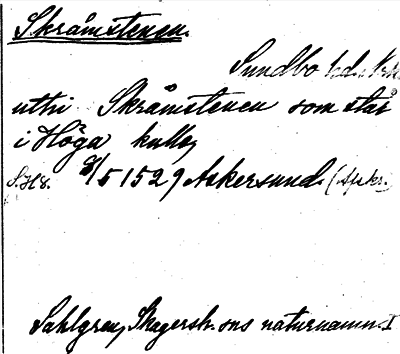 Skråmstenen.
Sundbo hd.
uttri Skråmstenen som står
i Höga kulle,
8/5 1529 Askersund.
Sahlgren, Skagersh. sns naturnamn. I